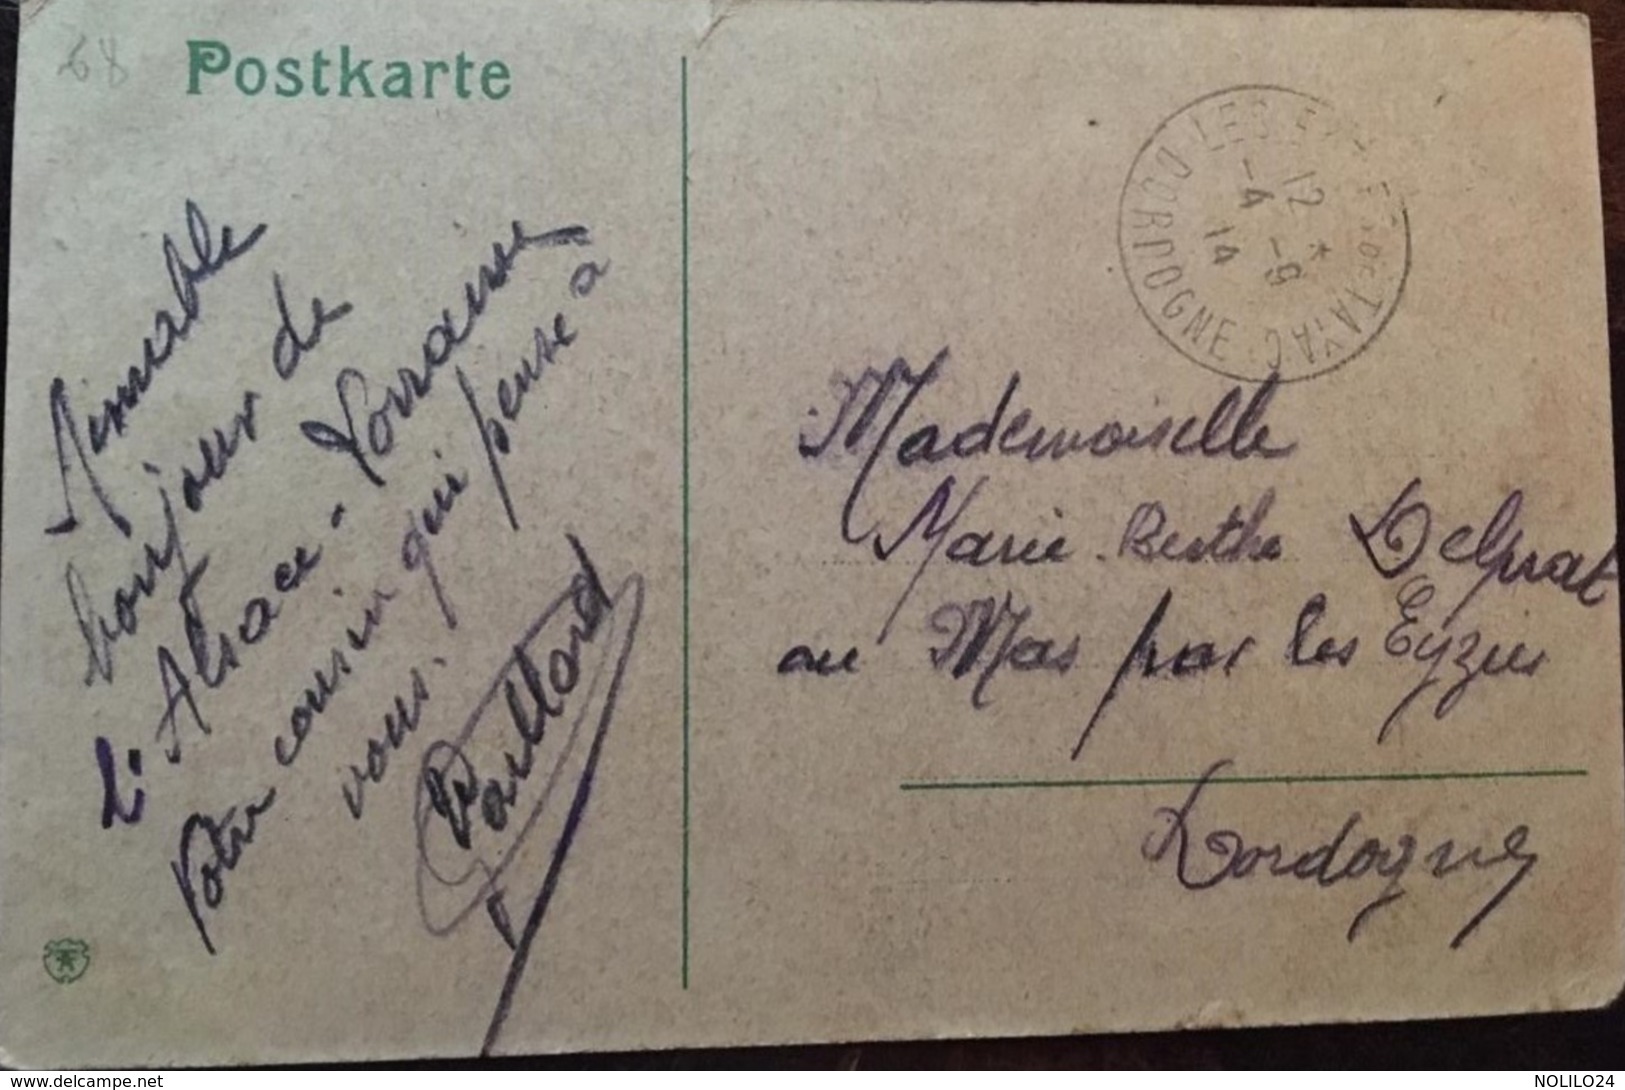 68
Postkarte
Aimable
bonjour de
L'Alsace-Lorraine
Votre cousin qui pense à
vous.
LES EYZIES DE TAYAC
DORDOGNE
12 *
-4 -9
14
Mademoiselle
Marie-Berthe Delprat
au Mas par les Eyzies
Dordogne
www.delcampe.net
NOLILO24